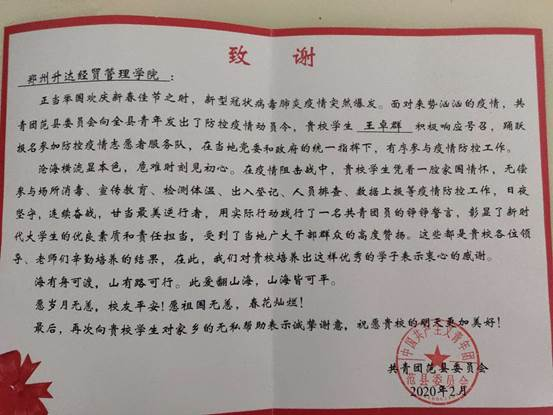 致 谢
郑州升达经贸管理学院 ：
正当举国欢庆新春佳节之时，新型冠状病毒肺炎疫情突然爆发。面对来势汹汹的疫情，共
青团范县委员会向全县青年发出了防控疫情动员令，贵校学生 王卓群 积极响应号召，踊跃
报名参加防控疫情志愿者服务队，在当地党委和政府的统一指挥下，有序参与疫情防控工作。
沧海横流显本色，危难时刻见初心。在疫情阻击战中，贵校学生凭着一腔家国情怀，无偿
参与场所消毒、宣传教育、检测体温、出入登记、人员排查、数据上报等疫情防控工作，日夜
坚守，连续奋战，甘当最美逆行者，用实际行动践行了一名共青团员的铮铮誓言，彰显了新时
代大学生的优良素质和责任担当，受到了当地广大干部群众的高度赞扬。这些都是贵校各位领
导、老师们辛勤培养的结果，在此，我们对贵校培养出这样优秀的学子表示衷心的感谢。
海有舟可渡，山有路可行。此爱翻山海，山海皆可平。
愿岁月无恙，校友平安！愿祖国无恙，春花灿烂！
最后，再次向贵校学生对家乡的无私帮助表示诚挚谢意，祝愿贵校的明天更加美好！
中国共产主义青年团
范县委员会
共青团范县委员会
2020年2月